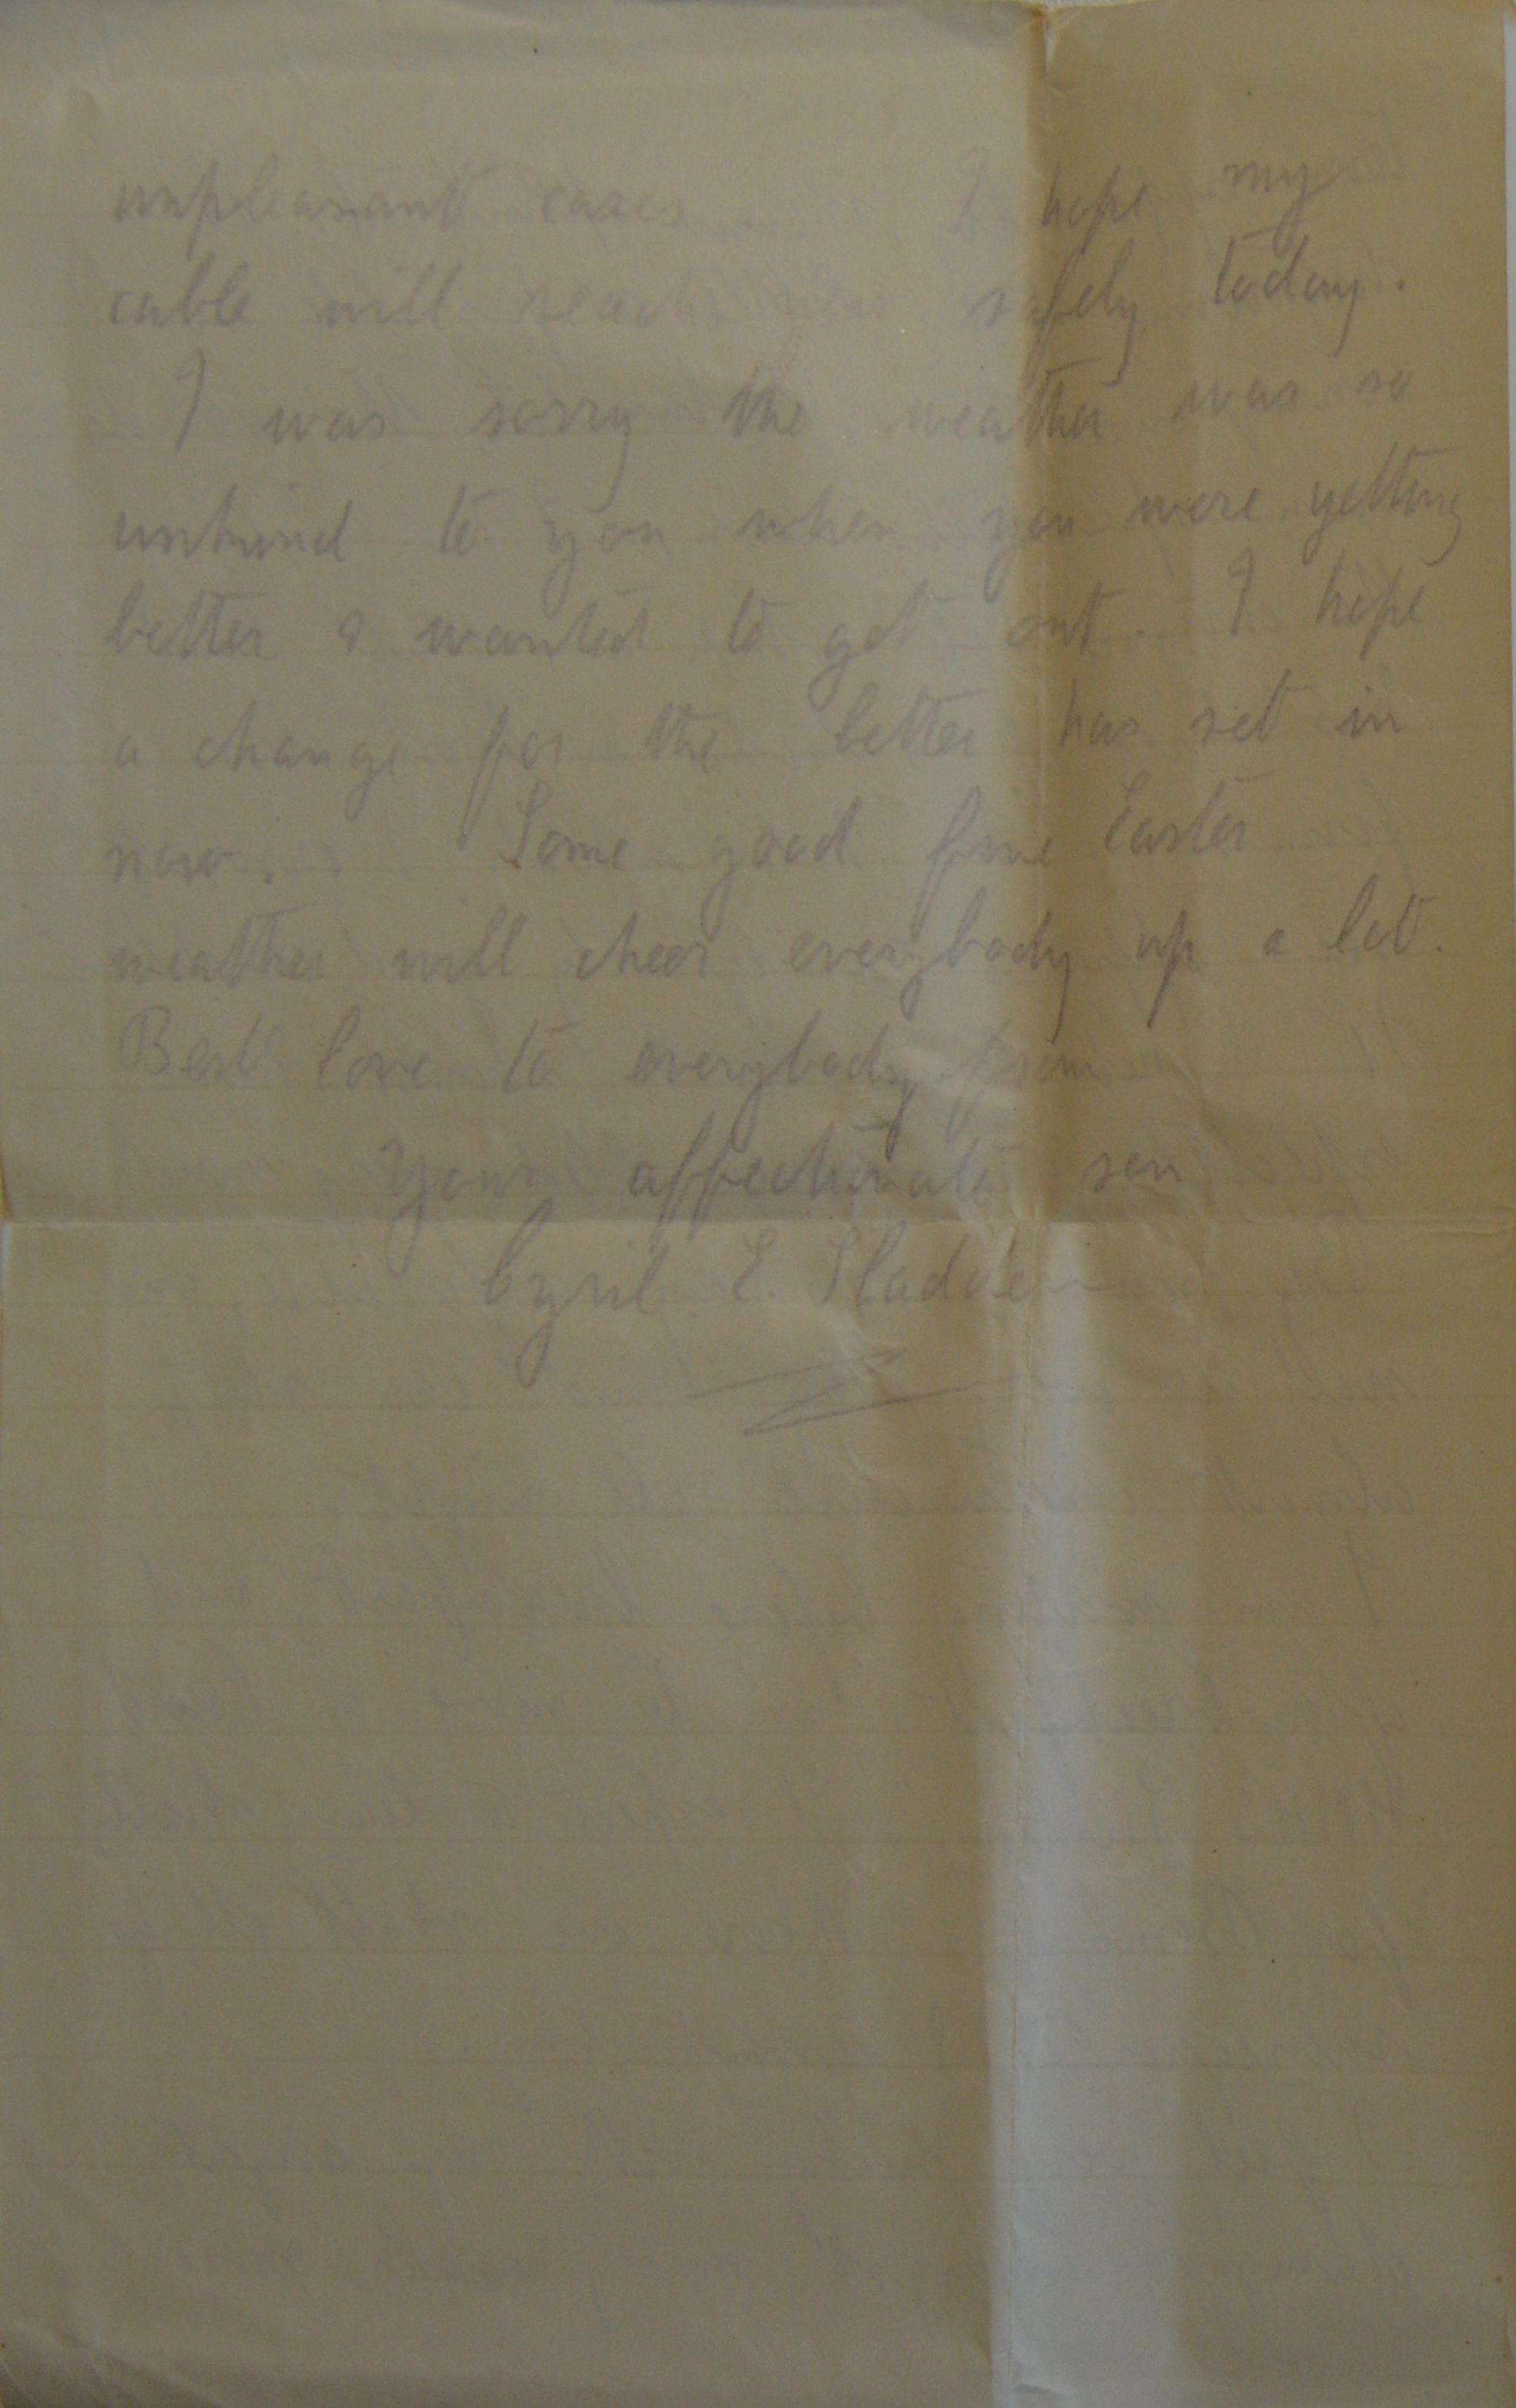 unpleasant cases. I hope my
cable will reach you safely today.
I was sorry the weather was so
unkind to you when you were getting
better & wanted to get out. I hope
a change for the better has set in
now. Some good fine Easter
weather will cheer everybody up a lot.
Best love to everybody from
Your affectionate son
Cyril E. Sladden